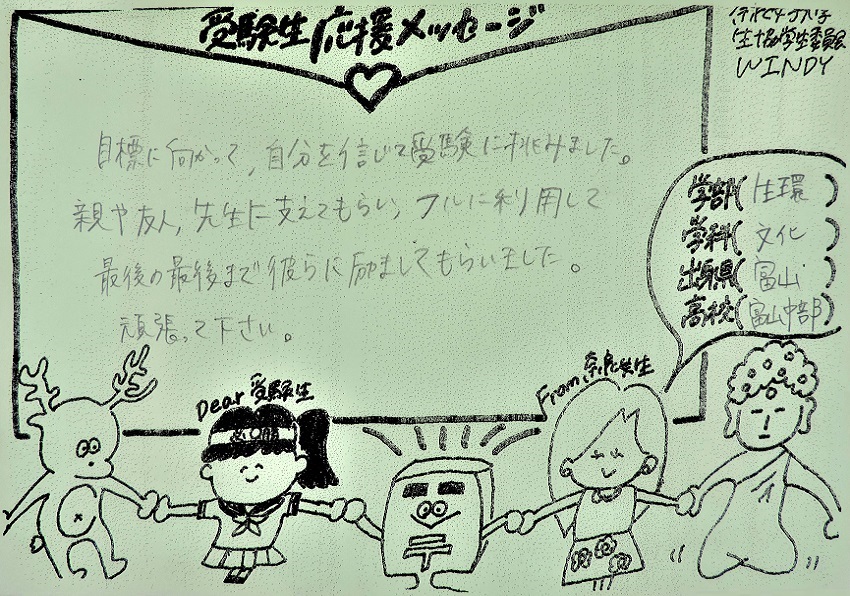 受験生応援メッセージ
生協学生委員会
WINDY
目標に向かって、自分を信じて受験に挑みました。
親や友人、先生に支えてもらい、フルに利用して
最後の最後まで彼らに励ましてもらいました。
頑張って下さい。
学部(生環)
学科(文化)
出身県(富山)
高校(富山中部)
Dear 受験生
From 奈良女生
必勝
〒